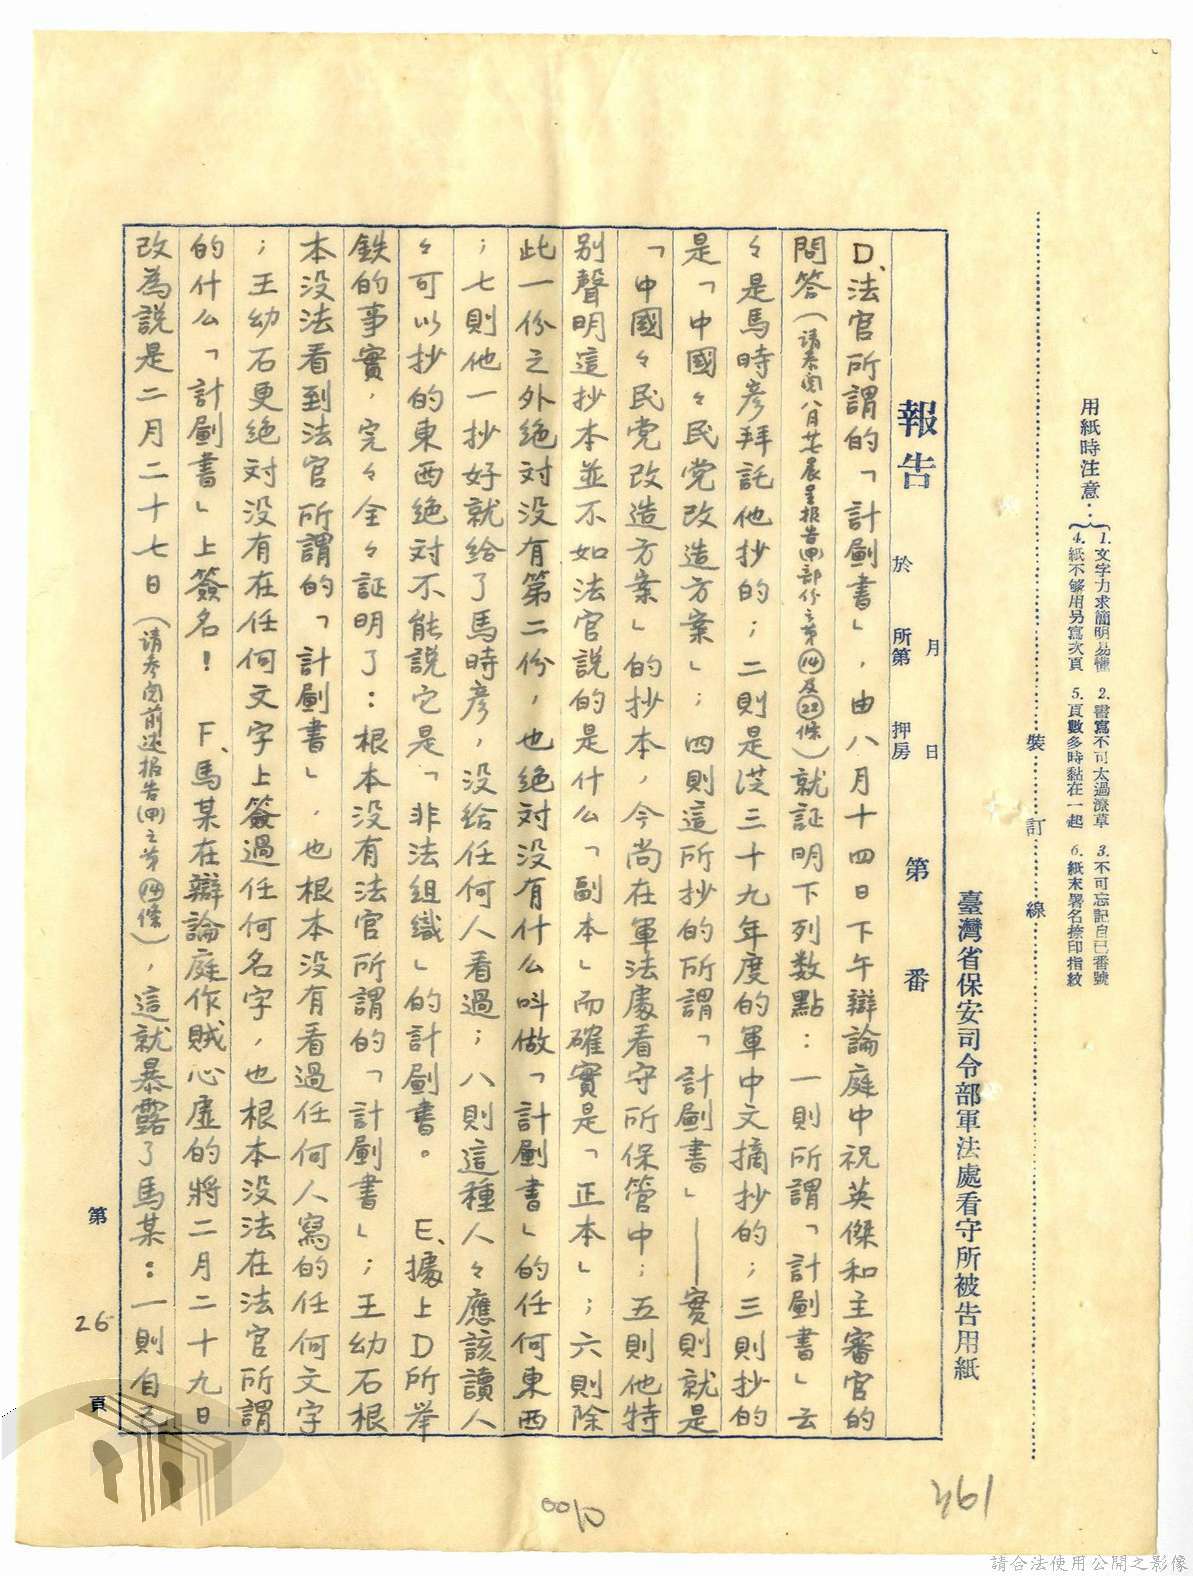 用紙時注意：
1.文字力求簡明易懂 2.書寫不可太過潦草 3.不可忘記自己番號
4.紙不够用另寫次頁 5.頁數多時黏在一起 6.紙末署名捺印指紋
裝 訂 線
臺灣省保安司令部軍法處看守所被告用紙
報告 於 月 日
所第 押房 第 番
D、法官所謂的「計劃書」，由八月十四日下午辯論庭中祝英傑和主審官的
問答（請参閱八月廿晨呈报告(甲)部份之第⑭及㉒條）就証明下列数點：一則所謂「計劃書」云
々是馬時彦拜託他抄的；二則是從三十九年度的軍中文摘抄的；三則抄的
是「中國々民党改造方案」；四則這所抄的所謂「計劃書」——實則就是
「中國々民党改造方案」的抄本，今尚在軍法處看守所保管中；五則他特
别聲明這抄本並不如法官説的是什么「副本」而確實是「正本」；六則除
此一份之外绝对没有第二份，也绝对没有什么叫做「計劃書」的任何東西
；七則他一抄好就给了馬時彦，没给任何人看過；八則這種人々應該讀人
々可以抄的東西绝对不能説它是「非法組織」的計劃書。 E、據上D所举
鉄的事實，完々全々証明了：根本没有法官所謂的「計劃書」；王幼石根
本没法看到法官所謂的「計劃書」，也根本没有看過任何人寫的任何文字
；王幼石更绝对没有在任何文字上簽過任何名字，也根本没法在法官所謂
的什么「計劃書」上簽名！ F、馬某在辯論庭作賊心虚的將二月二十九日
改為説是二月二十七日（请参閱前述报告(甲)之第⑭條），這就暴露了馬某：一則自己
第 26 頁
00/0
461
請合法使用公開之影像